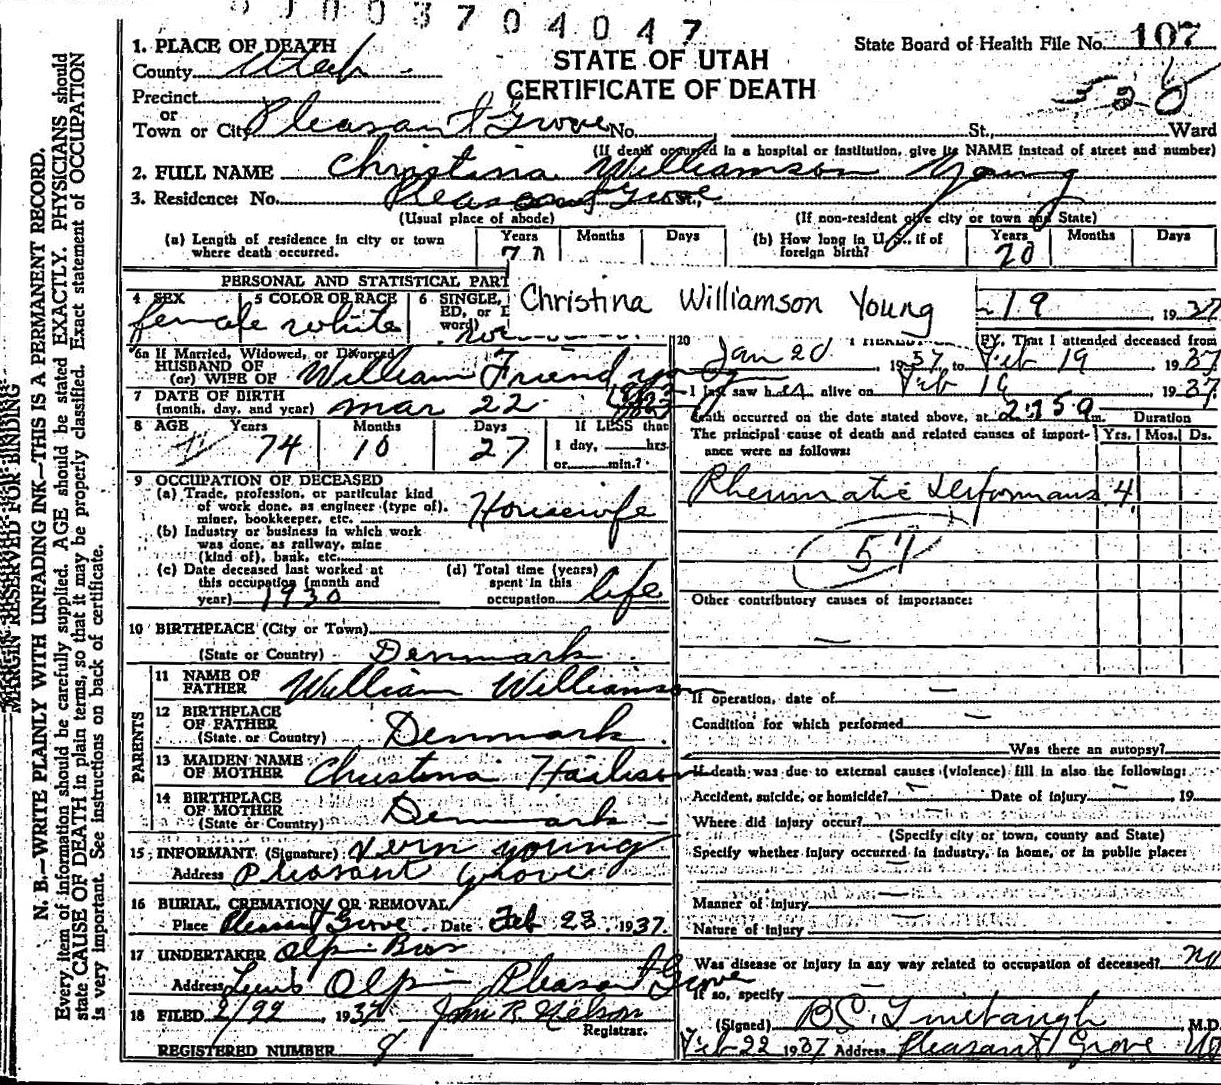 0 3 7 0 4 0 4 7
State Board of Health File No. 107
STATE OF UTAH
CERTIFICATE OF DEATH
1. PLACE OF DEATH
County Utah
Precinct
or
Town or City Pleasant Grove No. St., Ward
(If death occurred in a hospital or institution, give its NAME instead of street and number)
2. FULL NAME Christina Williamson Young
3. Residence: No. Pleasant Grove St.,
(Usual place of abode) (If non-resident give city or town and State)
(a) Length of residence in city or town where death occurred. Years Months Days
(b) How long in U. S., if of foreign birth? Years 70 Months Days
PERSONAL AND STATISTICAL PART
Christina Williamson Young
4 SEX female
5 COLOR OR RACE white
6 SINGLE,
ED, or
word)
6a If Married, Widowed, or Divorced
HUSBAND OF
(or) WIFE OF William Friend Young
7 DATE OF BIRTH
(month, day, and year) Mar 22
8 AGE Years 74 Months 10 Days 27 If LESS than
1 day, hrs.
or min.?
9 OCCUPATION OF DECEASED
(a) Trade, profession, or particular kind
of work done, as engineer (type of),
miner, bookkeeper, etc. Housewife
(b) Industry or business in which work
was done, as railway, mine
(kind of), bank, etc.
(c) Date deceased last worked at
this occupation (month and
year) 1930
(d) Total time (years)
spent in this
occupation life
10 BIRTHPLACE (City or Town)
(State or Country) Denmark
PARENTS
11 NAME OF
FATHER William Williamson
12 BIRTHPLACE
OF FATHER
(State or Country) Denmark
13 MAIDEN NAME
OF MOTHER Christina
14 BIRTHPLACE
OF MOTHER
(State or Country) Denmark
15 INFORMANT (Signature) Vern Young
Address Pleasant Grove
16 BURIAL, CREMATION OR REMOVAL
Place Pleasant Grove Date Feb 23 1937
17 UNDERTAKER Olpin Bros
Address Olpin Pleasant Grove
18 FILED 2/22, 1937 John R. Nelson
Registrar.
REGISTERED NUMBER 8
19 1937
20 I HEREBY CERTIFY, That I attended deceased from
Jan 20 1937 to Feb 19 1937
I last saw her alive on Feb 19 1937
death occurred on the date stated above, at m. Duration
The principal cause of death and related causes of import-
ance were as follows: Yrs. Mos. Ds.
Rheumatic 4
57
Other contributory causes of importance:
If operation, date of
Condition for which performed
Was there an autopsy?
If death was due to external causes (violence) fill in also the following:
Accident, suicide, or homicide? Date of injury 19
Where did injury occur?
(Specify city or town, county and State)
Specify whether injury occurred in industry, in home, or in public place:
Manner of injury
Nature of injury
Was disease or injury in any way related to occupation of deceased? no
If so, specify
(Signed) M.D.
Feb 22 1937 Address Pleasant Grove
MARGIN RESERVED FOR BINDING
N. B.—WRITE PLAINLY WITH UNFADING INK—THIS IS A PERMANENT RECORD.
Every item of information should be carefully supplied. AGE should be stated EXACTLY. PHYSICIANS should
state CAUSE OF DEATH in plain terms, so that it may be properly classified. Exact statement of OCCUPATION
is very important. See instructions on back of certificate.